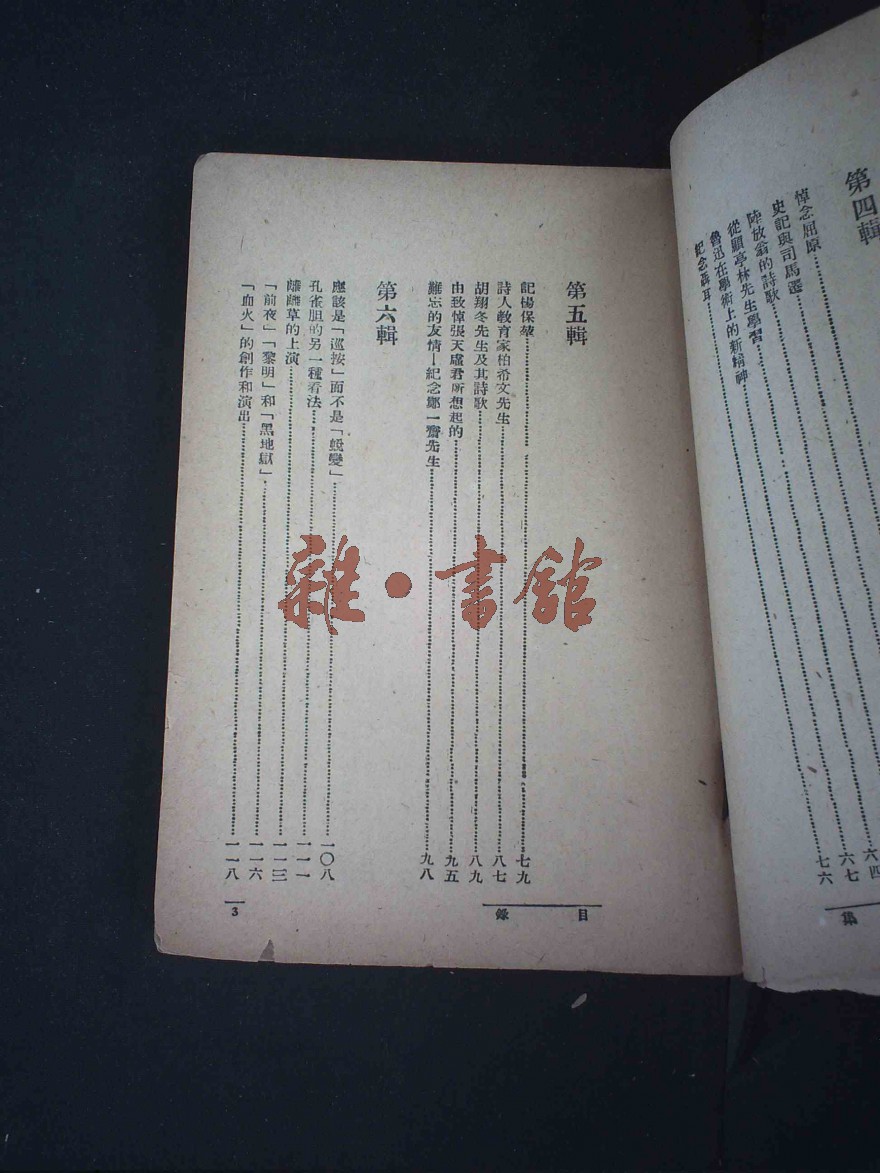 第四輯
悼念屈原
史記與司馬遷
陸放翁的詩歌
從顧亭林先生學習……六四
魯迅在學術上的新精神……六七
紀念聶耳……七六
集
第五輯
記楊保……七九
詩人教育家柏希文先生……八七
胡翔冬先生及其詩歌……八九
由致悼張天虛君所想起的……九五
難忘的友情—紀念鄒一齋先生……九八
第六輯
應該是「巡按」而不是「蛻變」……一〇八
孔雀胆的另一種看法……一一一
離離草的上演……一一三
「前夜」「黎明」和「黑地獄」……一一六
「血火」的創作和演出……一一八
目錄
3
雜·書館